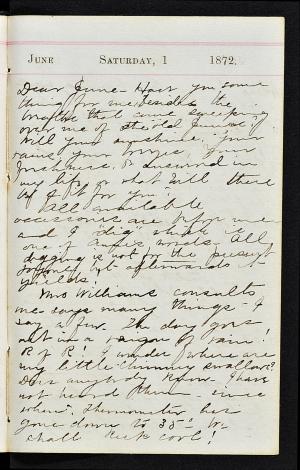 June Saturday, 1 1872.
Dear June - Have you some
thing for me besides the
breaths that come sweeping
over me of the old Junes?
Will your
rains, your your
freshness, be in
my life or what will there
be of it for you"
All available
are before me
and I "dig" which is
one of words. All
digging is not for the present
but afterwards it
yields!
Mrs Williams consults
me says many things - I
say a few. The day goes
out in a of rain!
R of R! I wonder where are
my little chimney swallows?
Does anybody know. I have
not heard them since
when. Thermometer has
gone down to 35°! We
shall keep cool!